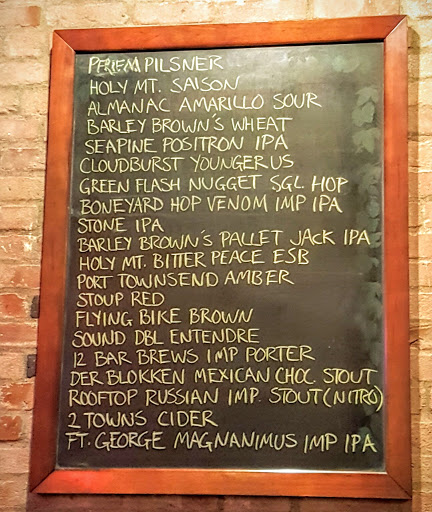 PFRIEM PILSNER
HOLY MT. SAISON
ALMANAC AMARILLO SOUR
BARLEY BROWN'S WHEAT
SEAPINE POSITRON IPA
CLOUDBURST YOUNGERUS
GREEN FLASH NUGGET SGL HOP
BONEYARD HOP VENOM IMP IPA
STONE IPA
BARLEY BROWN'S PALLET JACK IPA
HOLY MT. BITTER PEACE ESB
PORT TOWNSEND AMBER
STOUP RED
FLYING BIKE BROWN
SOUND DBL ENTENDRE
12 BAR BREWS IMP PORTER
DER BLOKKEN MEXICAN CHOC. STOUT
ROOFTOP RUSSIAN IMP. STOUT (NITRO)
2 TOWNS CIDER
FT. GEORGE MAGNANIMUS IMP IPA